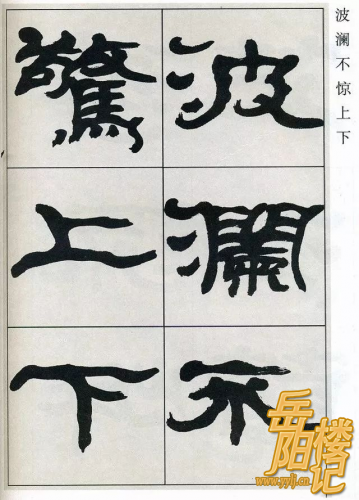 波澜不惊上下
波瀾不
驚上下
岳阳楼记
www.yylj.cn